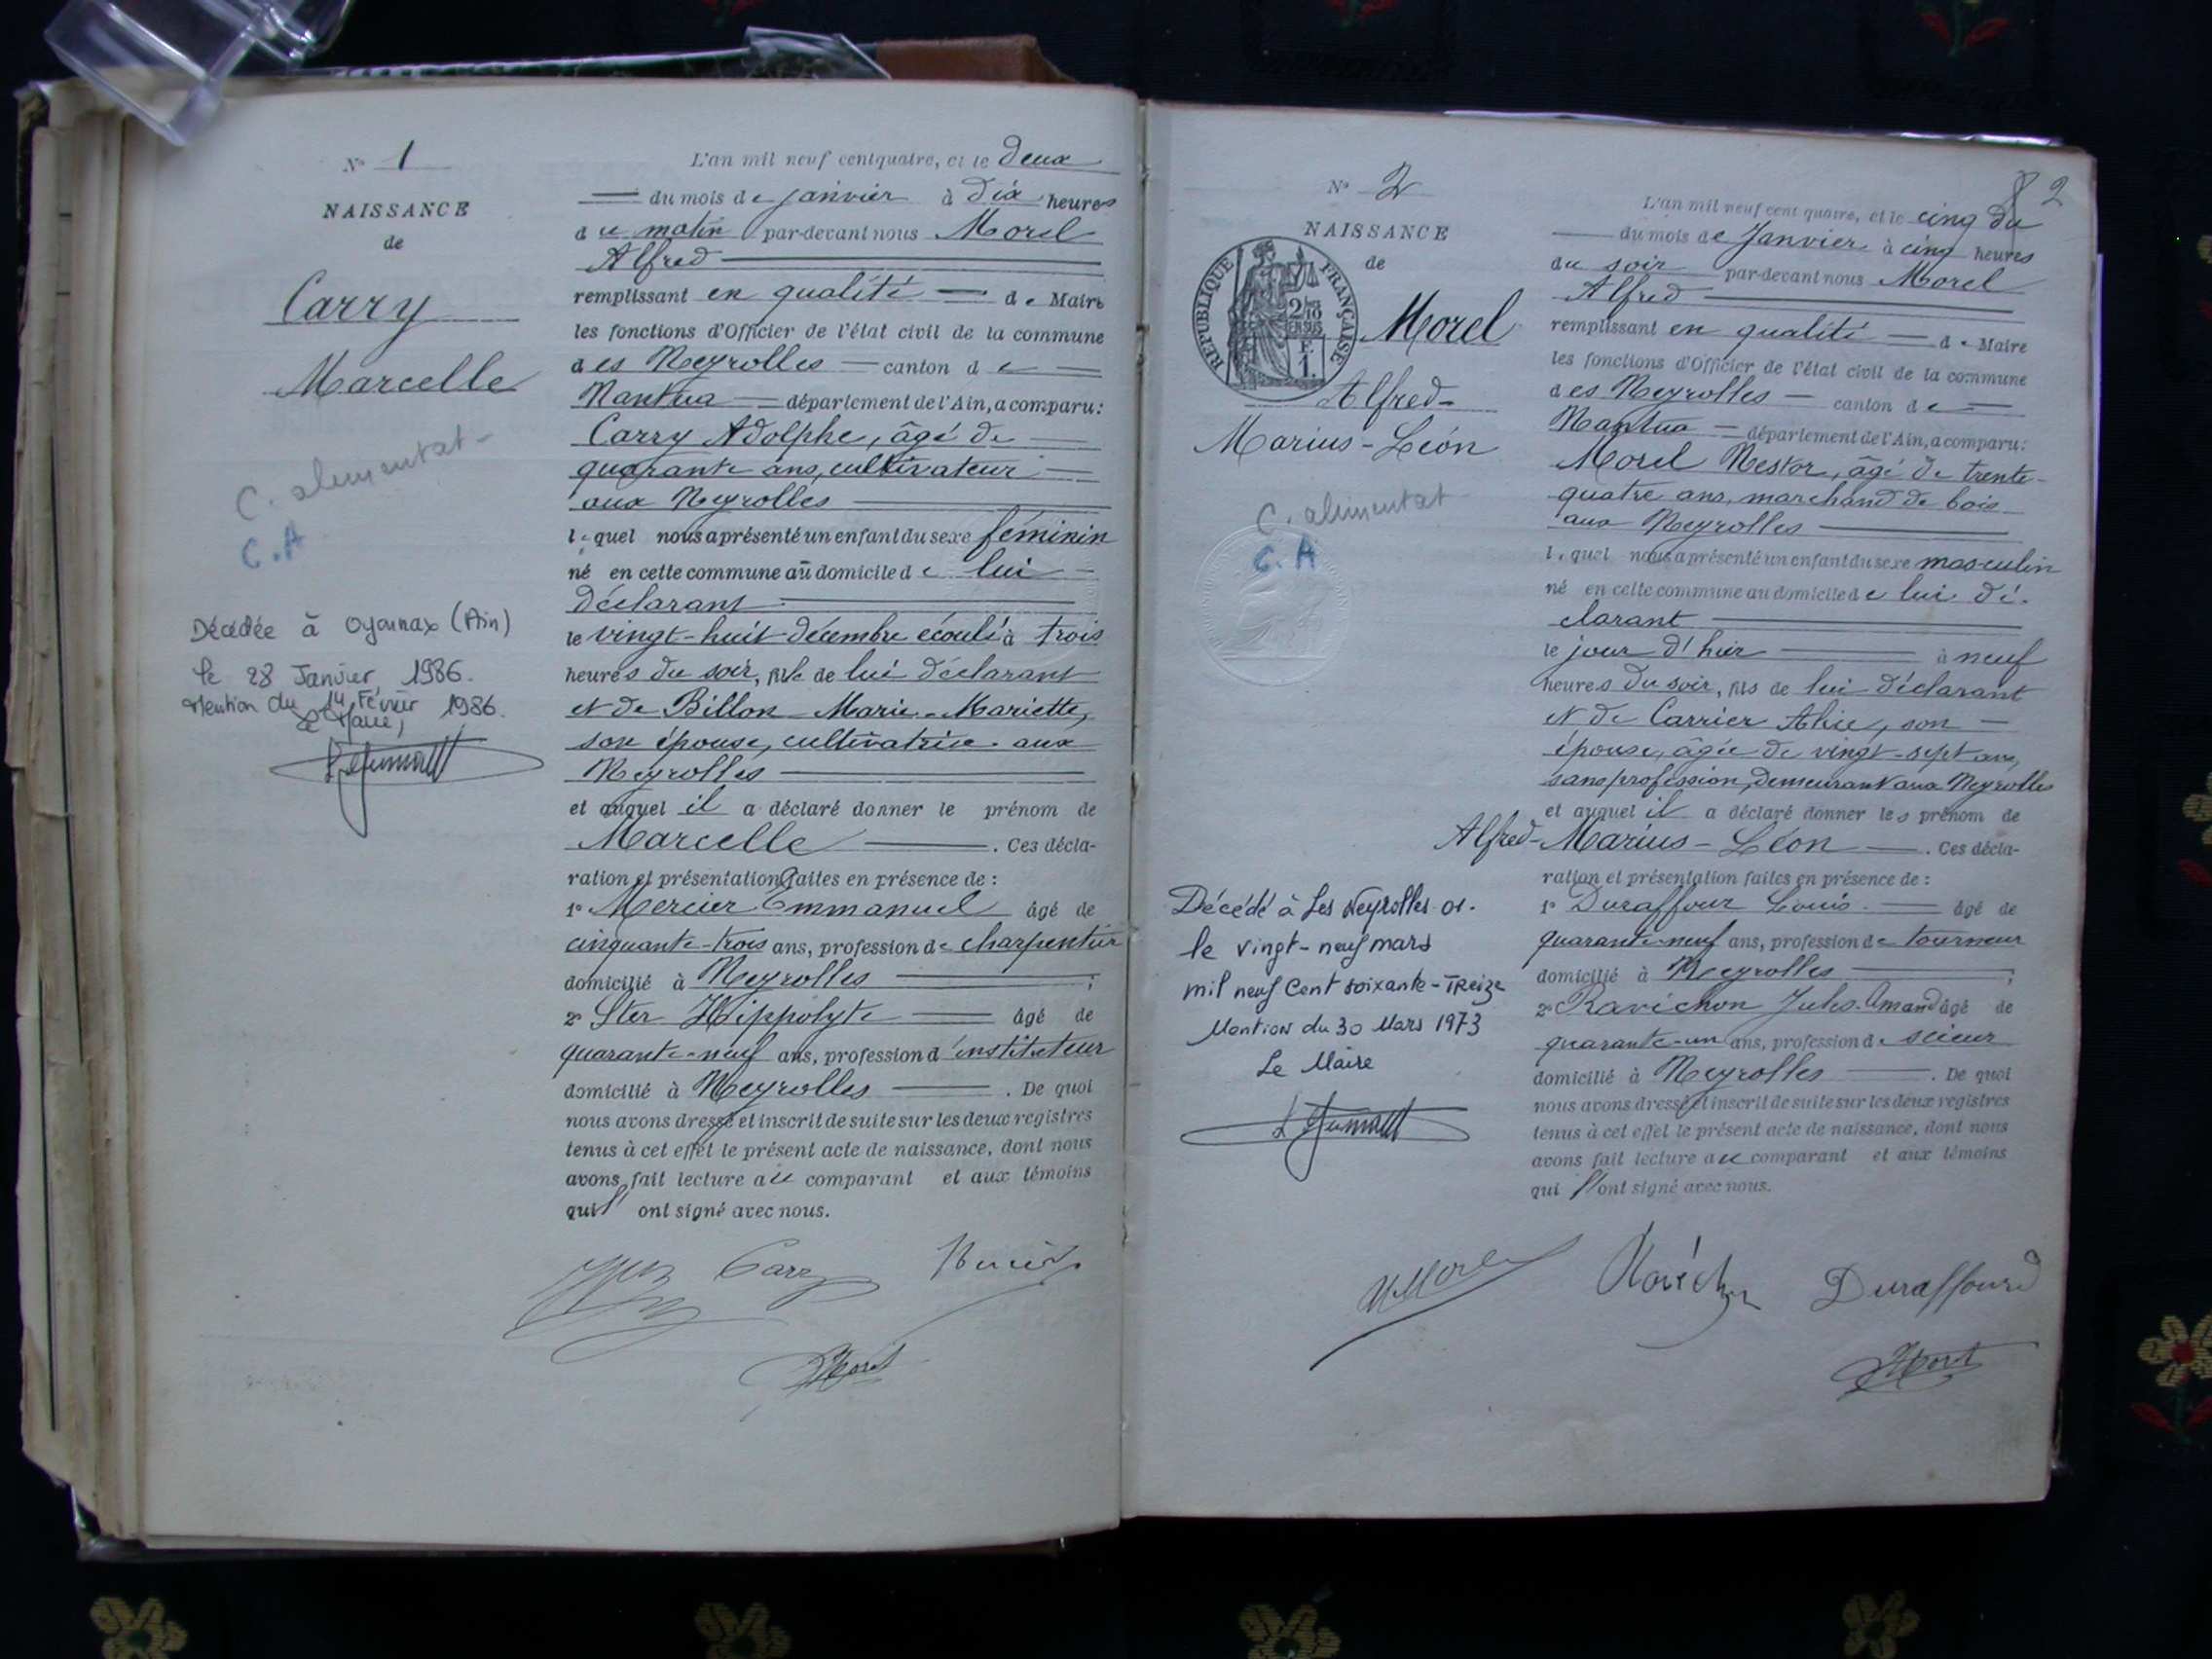 N° 1
NAISSANCE
de
Carry
Marcelle
C. alimentat-
C.A
Décédée à Oyonnax (Ain)
le 28 Janvier 1986.
Mention du 14 Février 1986.
Le Maire,
L'an mil neuf cent quatre, et le deux
du mois de janvier à dix heures
du matin par-devant nous Morel
Alfred
remplissant en qualité de Maire
les fonctions d'Officier de l'état civil de la commune
des Neyrolles canton de
Nantua département de l'Ain, a comparu:
Carry Adolphe, âgé de
quarante ans, cultivateur
aux Neyrolles
lequel nous a présenté un enfant du sexe féminin
né en cette commune au domicile de lui
déclarant
le vingt-huit décembre écoulé à trois
heures du soir, fils de lui déclarant
et de Billon Marie-Mariette,
son épouse, cultivatrice aux
Neyrolles
et auquel il a déclaré donner le prénom de
Marcelle. Ces décla-
ration et présentation faites en présence de :
1° Mercier Emmanuel âgé de
cinquante-trois ans, profession de charpentier
domicilié à Neyrolles ;
2° Ster Hippolyte âgé de
quarante-neuf ans, profession d'instituteur
domicilié à Neyrolles. De quoi
nous avons dressé et inscrit de suite sur les deux registres
tenus à cet effet le présent acte de naissance, dont nous
avons fait lecture au comparant et aux témoins
qui ont signé avec nous.
Carry
Morel
82
N° 2
NAISSANCE
de
RÉPUBLIQUE FRANÇAISE
2/10
EN SUS
F.
1.
Morel
Alfred-
Marius-Léon
C. alimentat
C.A
Décédé à Les Neyrolles 01.
le vingt-neuf mars
mil neuf Cent soixante-Treize
Mention du 30 Mars 1973
Le Maire
L'an mil neuf cent quatre, et le cinq du
du mois de Janvier à cinq heures
du soir par-devant nous Morel
Alfred
remplissant en qualité de Maire
les fonctions d'Officier de l'état civil de la commune
des Neyrolles canton de
Nantua département de l'Ain, a comparu:
Morel Nestor, âgé de trente-
quatre ans, marchand de bois
aux Neyrolles
lequel nous a présenté un enfant du sexe masculin
né en cette commune au domicile de lui dé-
clarant
le jour d'hier à neuf
heures du soir, fils de lui déclarant
et de Carrier, son
épouse, âgée de vingt-sept ans,
sans profession, demeurant aux Neyrolles
et auquel il a déclaré donner les prénom de
Alfred-Marius-Léon. Ces décla-
ration et présentation faites en présence de :
1° Duraffour Louis. âgé de
quarante-neuf ans, profession de tourneur
domicilié à Neyrolles ;
2° Ravichon Jules-Amand âgé de
quarante-un ans, profession de scieur
domicilié à Neyrolles. De quoi
nous avons dressé et inscrit de suite sur les deux registres
tenus à cet effet le présent acte de naissance, dont nous
avons fait lecture au comparant et aux témoins
qui ont signé avec nous.
NMorel
Duraffourd